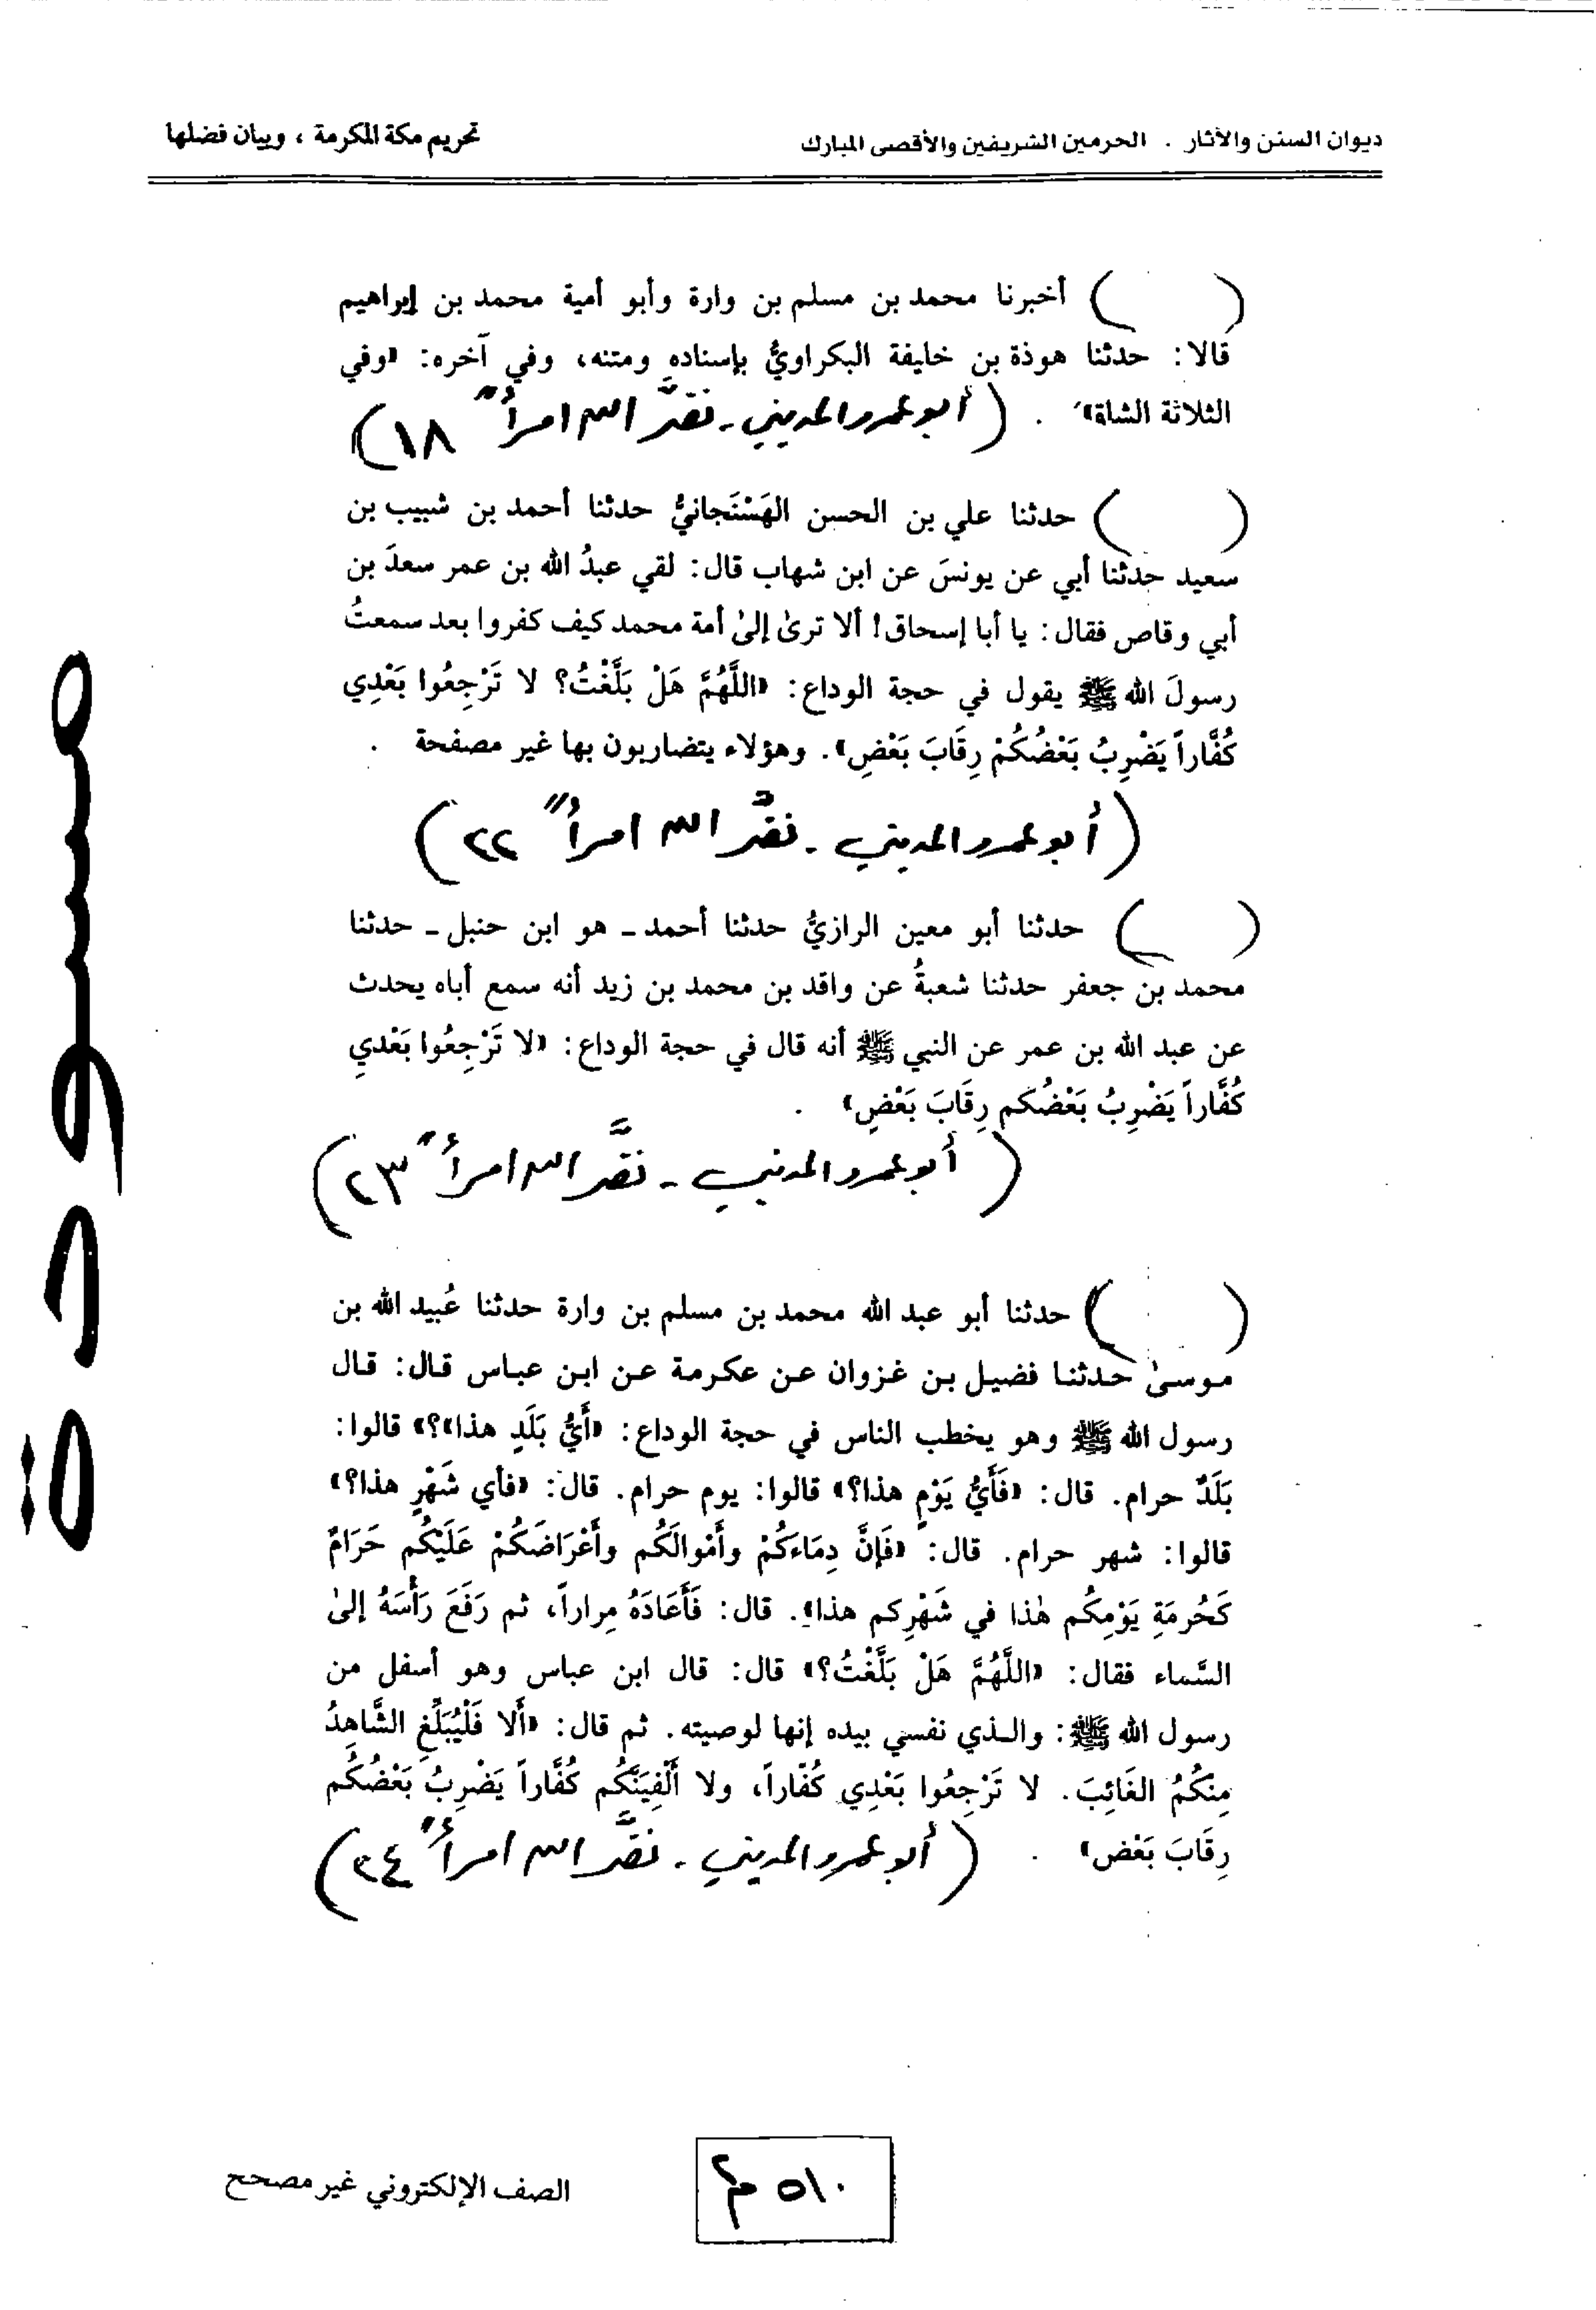 ديوان السنن والآثار . الحرمين الشريفين والأقصى المبارك تحريم مكة المكرمة ، وبيان فضلها
( ) أخبرنا محمد بن مسلم بن وارة وأبو أمية محمد بن إبراهيم
قالا: حدثنا هوذة بن خليفة البكراويُّ بإسناده ومتنه، وفي آخره: «وفي
الثلاثة الشاة» . (أبو عمرو المديني - نضَّر الله امرأً" ١٨)
( ) حدثنا علي بن الحسن الهَسْنَجانيُّ حدثنا أحمد بن شبيب بن
سعيد حدثنا أبي عن يونسَ عن ابن شهاب قال: لقي عبدُ الله بن عمر سعدَ بن
أبي وقاص فقال: يا أبا إسحاق! ألا ترىٰ إلىٰ أمة محمد كيف كفروا بعد سمعتُ
رسولَ الله ﷺ يقول في حجة الوداع: «اللَّهُمَّ هَلْ بَلَّغْتُ؟ لا تَرْجِعُوا بَعْدِي
كُفَّاراً يَضْرِبُ بَعْضُكُمْ رِقَابَ بَعْضٍ». وهؤلاء يتضاربون بها غير مصفحة .
(أبو عمرو المديني - نضَّر الله امرأً" ٢٢)
( ) حدثنا أبو معين الرازيُّ حدثنا أحمد - هو ابن حنبل - حدثنا
محمد بن جعفر حدثنا شعبةُ عن واقد بن محمد بن زيد أنه سمع أباه يحدث
عن عبد الله بن عمر عن النبي ﷺ أنه قال في حجة الوداع: «لا تَرْجِعُوا بَعْدي
كُفَّاراً يَضْرِبُ بَعْضُكم رِقَابَ بَعْضٍ» .
(أبو عمرو المديني - نضَّر الله امرأً" ٢٣)
( ) حدثنا أبو عبد الله محمد بن مسلم بن وارة حدثنا عُبيد الله بن
موسىٰ حدثنا فضيل بن غزوان عن عكرمة عن ابن عباس قال: قال
رسول الله ﷺ وهو يخطب الناس في حجة الوداع: «أَيُّ بَلَدٍ هذا»؟» قالوا:
بَلَدٌ حرام. قال: «فَأَيُّ يَوْمٍ هذا؟» قالوا: يوم حرام. قال: «فأي شَهْرٍ هذا؟»
قالوا: شهر حرام. قال: «فَإنَّ دِمَاءَكُمْ وأَمْوالَكُم وأَعْرَاضَكُمْ عَلَيْكُم حَرَامٌ
كَحُرمَةِ يَوْمِكُم هٰذا في شَهْرِكم هذا». قال: فَأَعَادَهُ مِراراً، ثم رَفَعَ رَأْسَهُ إلىٰ
السَّماء فقال: «اللَّهُمَّ هَلْ بَلَّغْتُ؟» قال: قال ابن عباس وهو أسفل من
رسول الله ﷺ: والذي نفسي بيده إنها لوصيته. ثم قال: «أَلا فَلْيُبَلِّغِ الشَّاهِدُ
مِنكُمُ الغَائِبَ. لا تَرْجِعُوا بَعْدِي كُفّاراً، ولا أُلْفِيَنَّكُم كُفَّاراً يَضْرِبُ بَعْضُكُم
رِقَابَ بَعْض» . (أبو عمرو المديني - نضَّر الله امرأً" ٢٤)
مسودة
٥١٠ م٢
الصف الإلكتروني غير مصحح